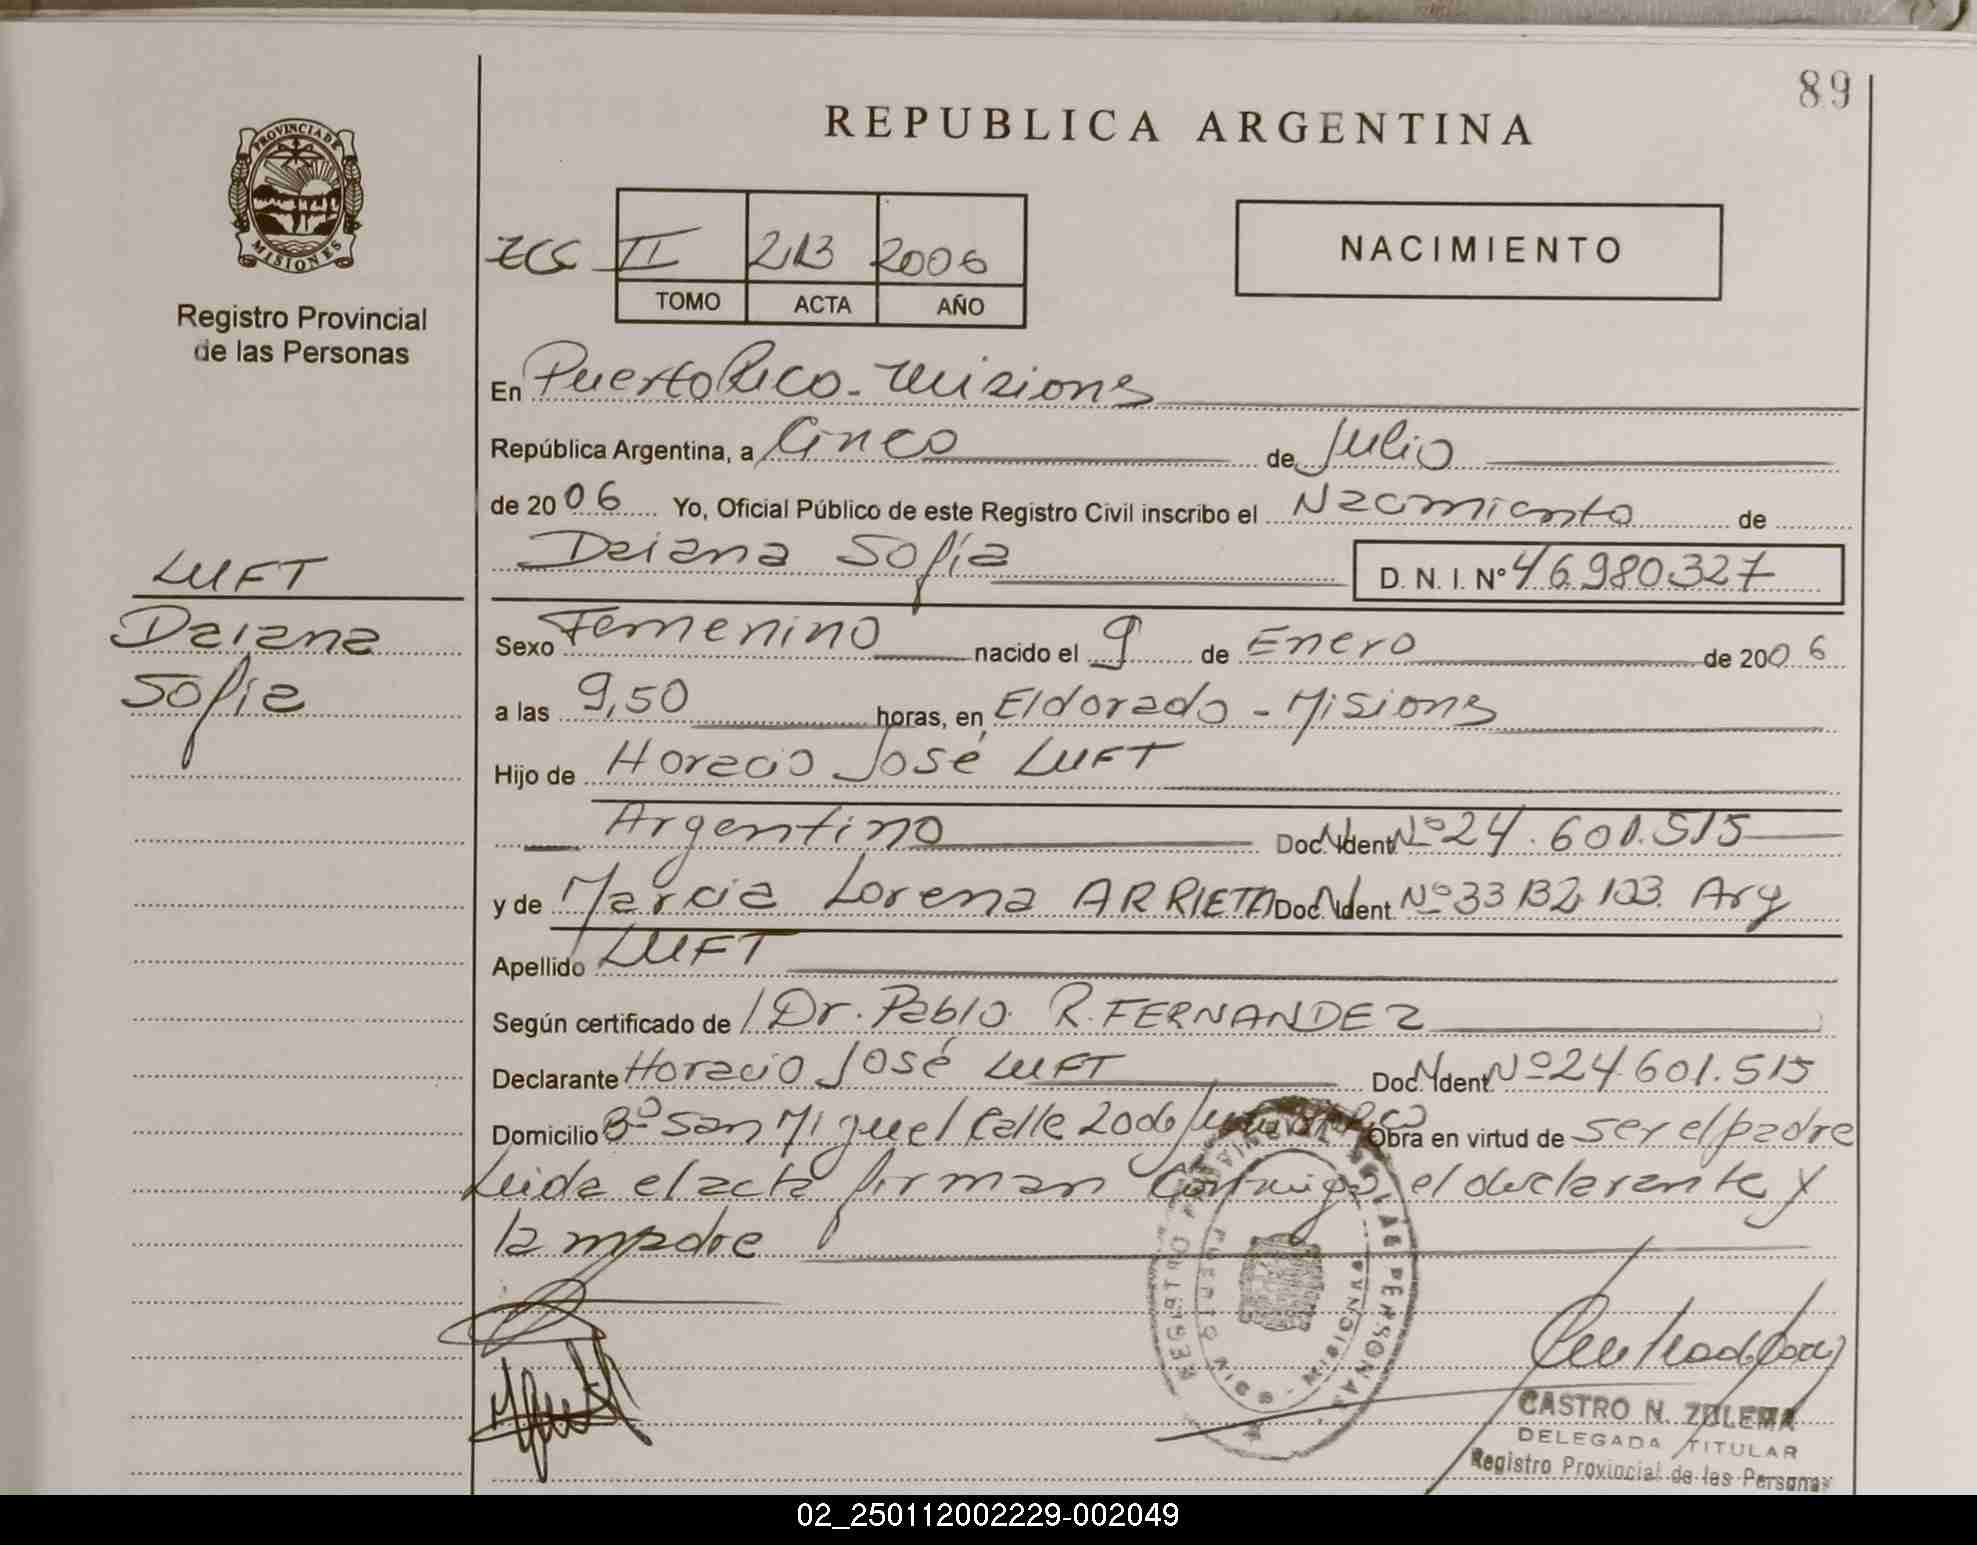 89
REPUBLICA ARGENTINA
PROVINCIA DE
MISIONES
Registro Provincial
de las Personas
II 213 2006
TOMO ACTA AÑO
NACIMIENTO
En Puerto Rico - Misiones
República Argentina, a Cinco de Julio
de 2006 Yo, Oficial Público de este Registro Civil inscribo el Nacimiento de
Daiana Sofía D. N. I. Nº 46980327
LUFT
Daiana
Sofía
Sexo Femenino nacido el 9 de Enero de 2006
a las 9,50 horas, en Eldorado - Misiones
Hijo de Horacio José LUFT
Argentino Doc. Ident Nº 24.601.515
y de Marcia Lorena ARRIETA Doc. Ident Nº 33 132 123 Arg
Apellido LUFT
Según certificado de Dr. Pablo R. FERNANDEZ
Declarante Horacio José LUFT Doc. Ident Nº 24.601.515
Domicilio Bº San Miguel Calle 20 de Junio Obra en virtud de ser el padre
Leida el acta firman conmigo el declarante y
la madre
REGISTRO PROVINCIAL DE LAS PERSONAS
PUERTO RICO - MISIONES
CASTRO N. ZULEMA
DELEGADA TITULAR
Registro Provincial de las Personas
02_250112002229-002049